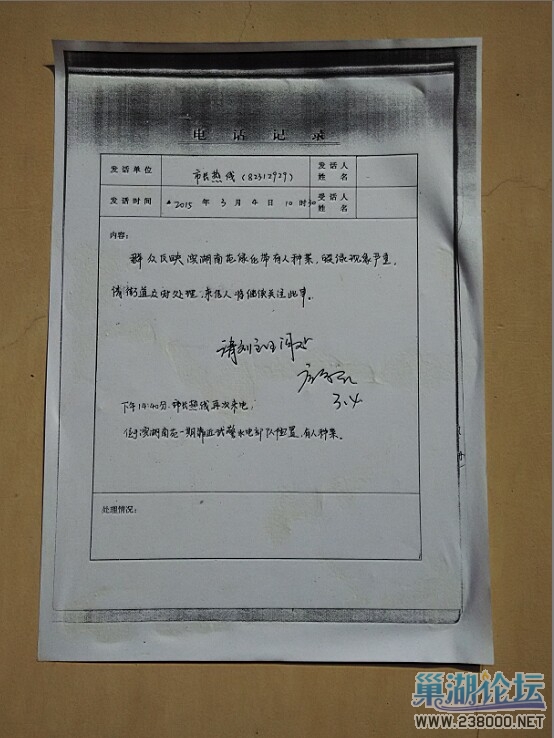 电话记录
发话单位 市长热线（82312929） 发话人姓名
发话时间 2015 年 3 月 4 日 10 时30 受话人姓名
内容：
群众反映滨湖南苑绿化带有人种菜，毁绿现象严重，
请街道立即处理，来信人将继续关注此事。
3.4
下午14:40分，市长热线再次来电，
位于滨湖南苑一期靠近武警水电部队位置，有人种菜。
处理情况：
巢湖论坛
WWW.238000.NET